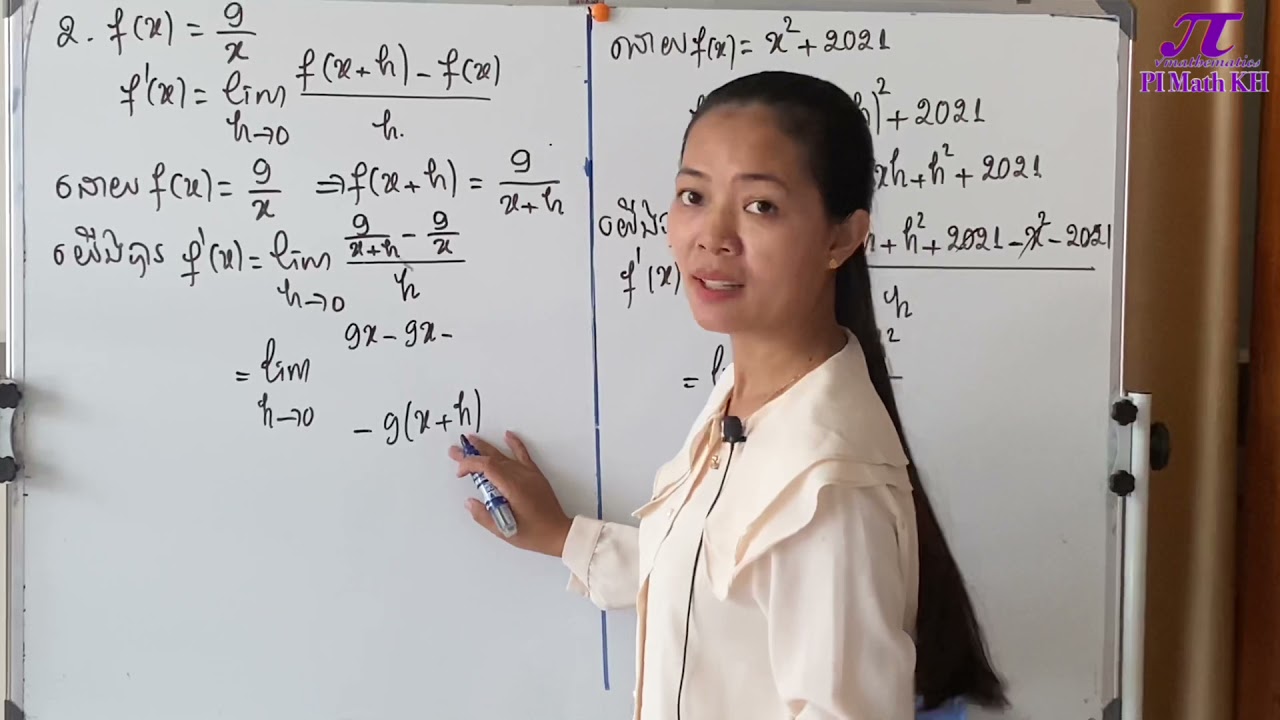 2. f(x) = 9/x
f'(x) = lim h→0 (f(x+h) - f(x))/h.
ដោយ f(x) = 9/x ⇒ f(x+h) = 9/(x+h)
យើងបាន f'(x) = lim h→0 (9/(x+h) - 9/x)/h
= lim h→0 9x - 9x -
- 9(x+h)
ដោយ f(x) = x² + 2021
)² + 2021
xh + h² + 2021
+ h² + 2021 - x² - 2021
f'(x) h
2
=
π
vmathematics
PI Math KH